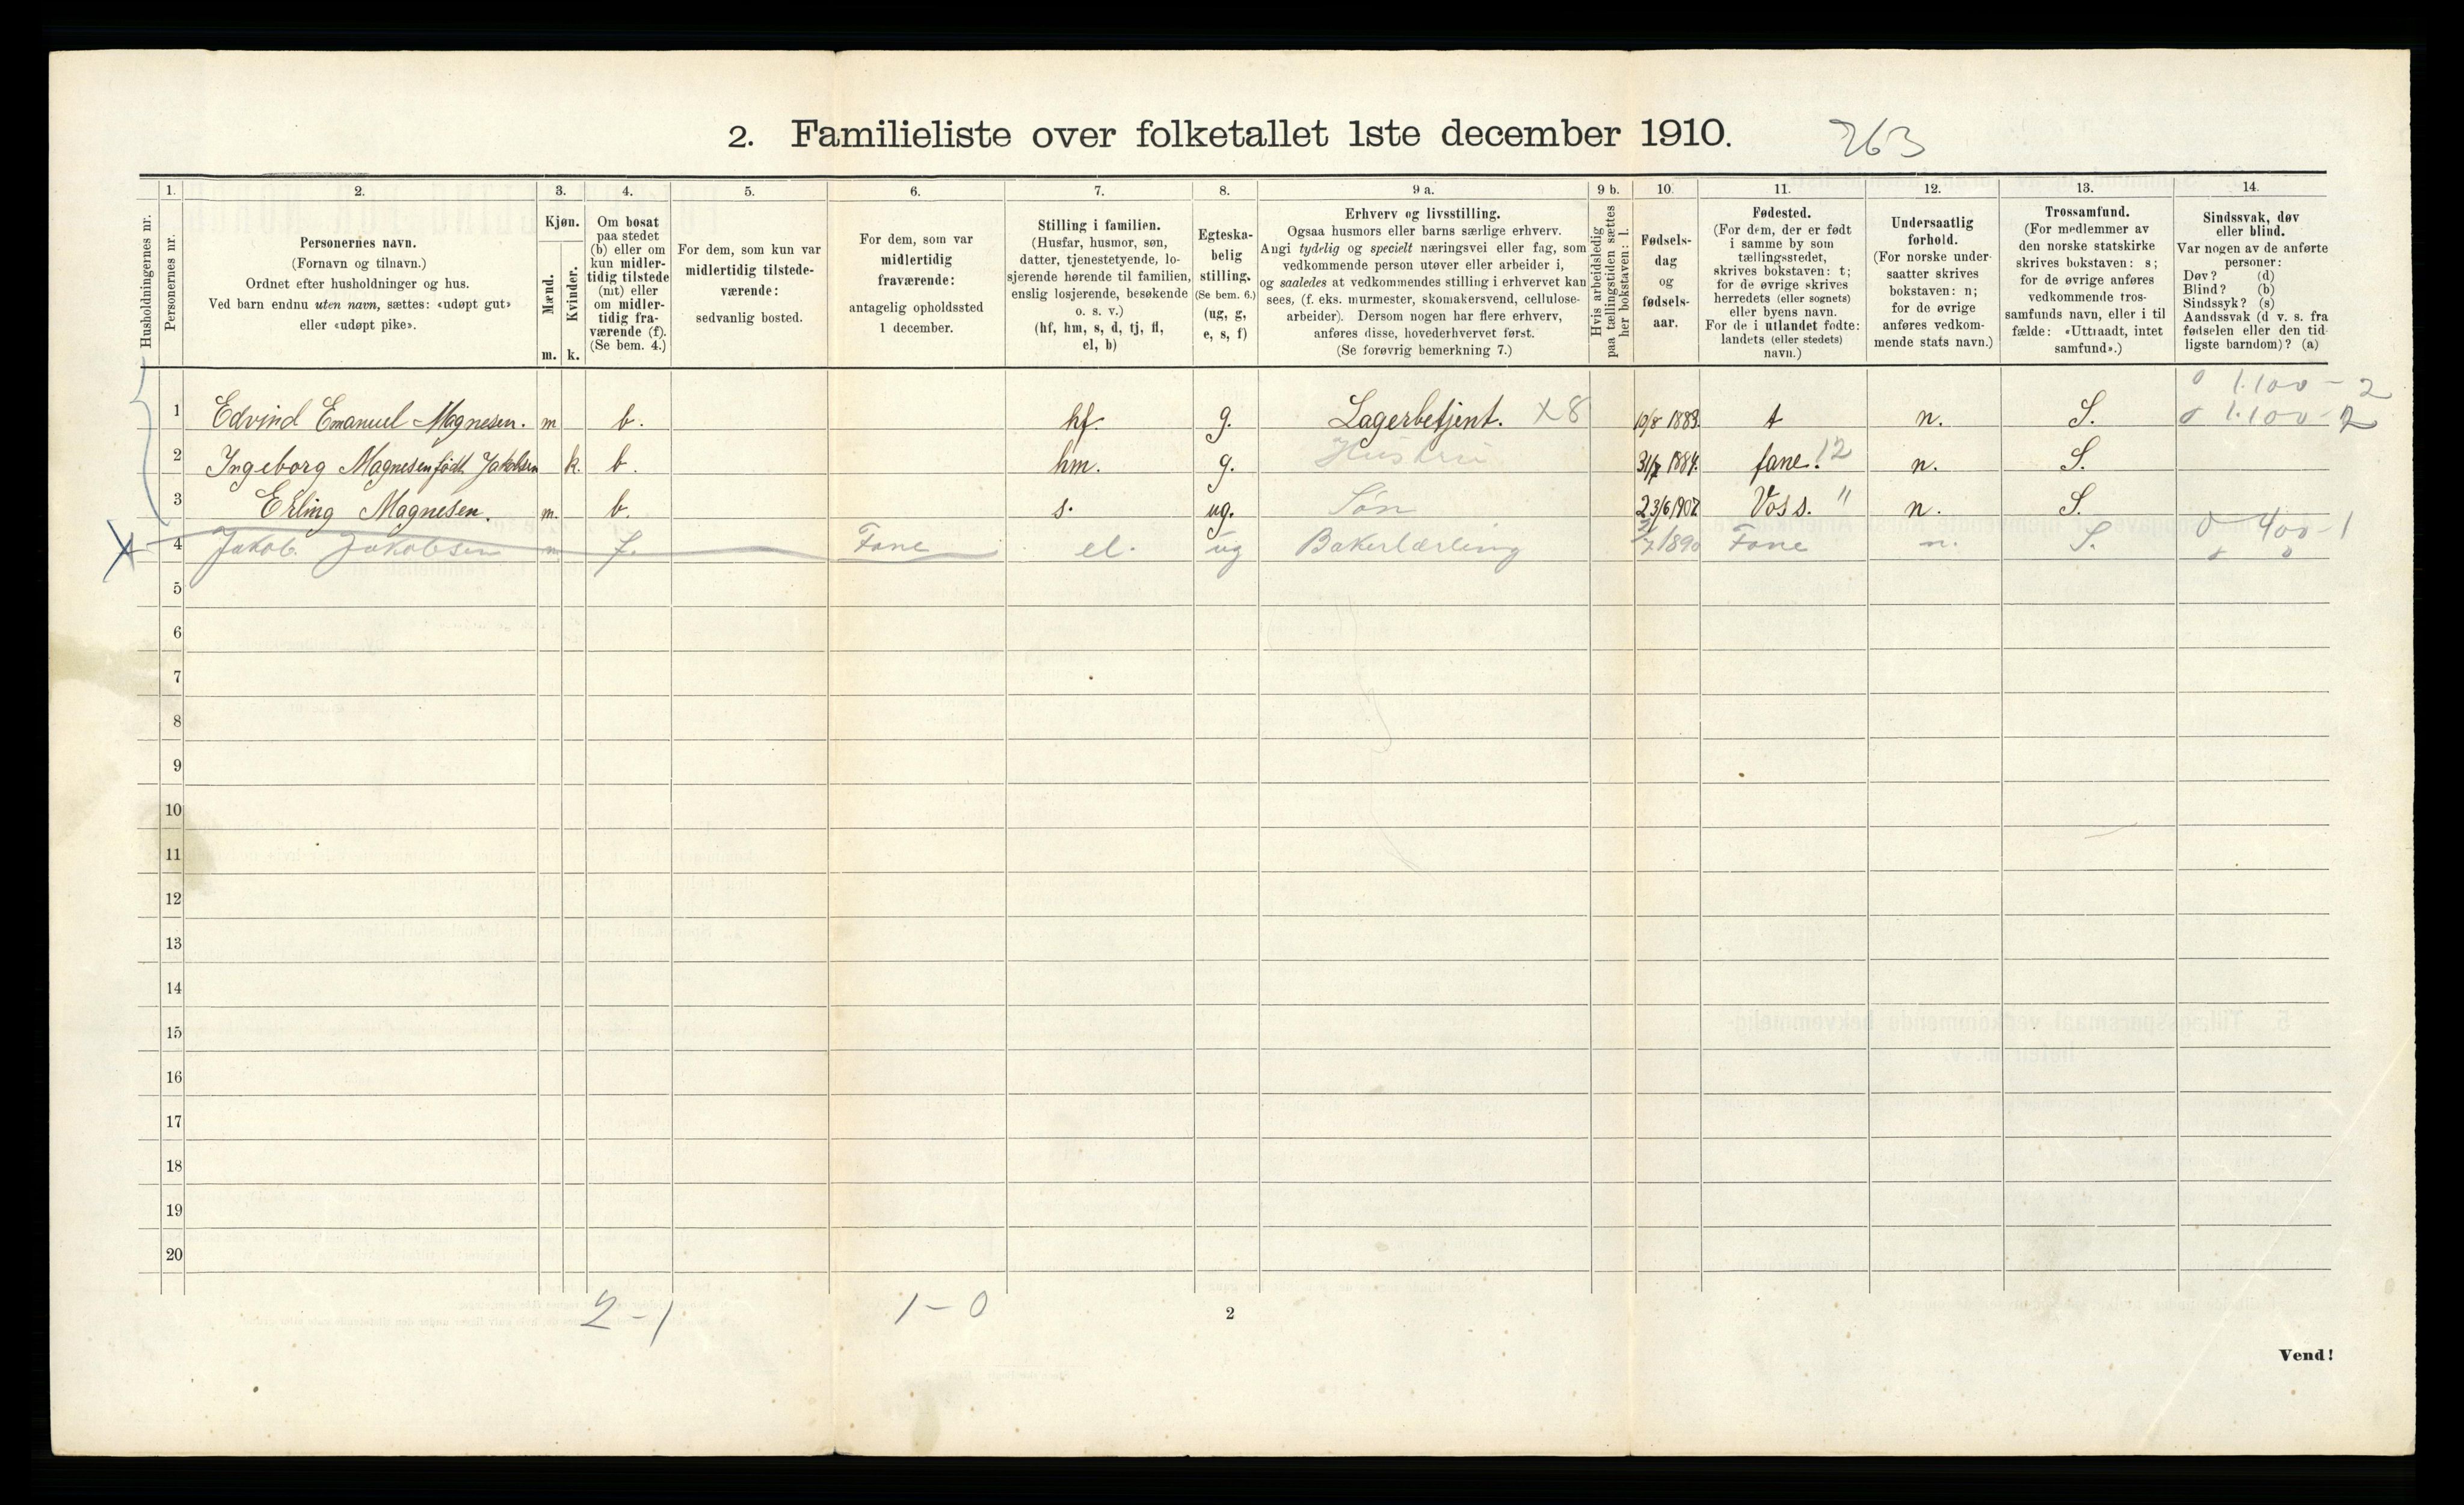 2. Familieliste over folketallet 1ste december 1910. 263
Husholdningernes nr.
1.
Personernes nr.
2.
Personernes navn.
(Fornavn og tilnavn.)
Ordnet efter husholdninger og hus.
Ved barn endnu uten navn, sættes: «udøpt gut»
eller «udøpt pike».
3.
Kjøn.
Mænd.
Kvinder.
m. k.
4.
Om bosat
paa stedet
(b) eller om
kun midler-
tidig tilstede
(mt) eller
om midler-
tidig fra-
værende (f).
(Se bem. 4.)
5.
For dem, som kun var
midlertidig tilstede-
værende:
sedvanlig bosted.
6.
For dem, som var
midlertidig
fraværende:
antagelig opholdssted
1 december.
7.
Stilling i familien.
(Husfar, husmor, søn,
datter, tjenestetyende, lo-
sjerende hørende til familien,
enslig losjerende, besøkende
o. s. v.)
(hf, hm, s, d, tj, fl,
el, b)
8.
Egteska-
belig
stilling.
(Se bem. 6.)
(ug, g,
e, s, f)
9 a.
Erhverv og livsstilling.
Ogsaa husmors eller barns særlige erhverv.
Angi tydelig og specielt næringsvei eller fag, som
vedkommende person utøver eller arbeider i,
og saaledes at vedkommendes stilling i erhvervet kan
sees, (f. eks. murmester, skomakersvend, cellulose-
arbeider). Dersom nogen har flere erhverv,
anføres disse, hovederhvervet først.
(Se forøvrig bemerkning 7.)
9 b.
Hvis arbeidsledig
paa tællingstiden sættes
her bokstaven: l.
10.
Fødsels-
dag
og
fødsels-
aar.
11.
Fødested.
(For dem, der er født
i samme by som
tællingsstedet,
skrives bokstaven: t;
for de øvrige skrives
herredets (eller sognets)
eller byens navn.
For de i utlandet fødte:
landets (eller stedets)
navn.)
12.
Undersaatlig
forhold.
(For norske under-
saatter skrives
bokstaven: n;
for de øvrige
anføres vedkom-
mende stats navn.)
13.
Trossamfund.
(For medlemmer av
den norske statskirke
skrives bokstaven: s;
for de øvrige anføres
vedkommende tros-
samfunds navn, eller i til
fælde: «Uttraadt, intet
samfund».)
14.
Sindssvak, døv
eller blind.
Var nogen av de anførte
personer:
Døv? (d)
Blind? (b)
Sindssyk? (s)
Aandssvak (d v. s. fra
fødselen eller den tid-
ligste barndom)? (a)
0 1.100 - 2
1 Edvind Emanuel Magnesen. m b. hf. g. Lagerbetjent. X8 10/8 1883. t n. S. 0 1.100 - 2
2 Ingeborg Magnesen født Jakobsen k. b. hm. g. Hustru 31/7 1884. fane. 12 n. S.
3 Erling Magnesen. m. b. s. ug. Søn 23/6 1907. Voss. " n. S.
X 4 Jakob Jakobsen m f. Fane el. ug Bakerlærling 1890 Fane n. S. 0 400 - 1
0 0
5
6
7
8
9
10
11
12
13
14
15
16
17
18
19
20
2-1 1-0
2
Vend!